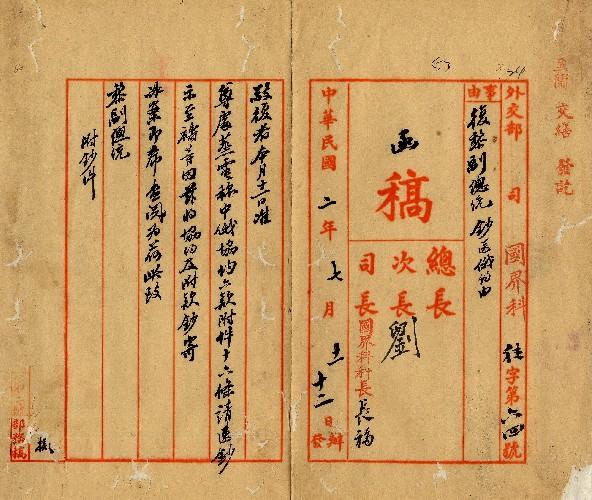 交繕 發訖
外交部 司 國界科 往字第六四號
事由
復黎副總統鈔送俄約由
函稿
總長
次長 劉
司長
國界科科長 長福
中華民國 二年 七月 十一 十二 日 辦 發
敬復者本月十一日准
尊處蒸電稱中俄協約六款附件十六條請速鈔
示至禱等因茲將協約及附款鈔寄
冰案即希查閱為荷此致
黎副總統
附鈔件
部務稿